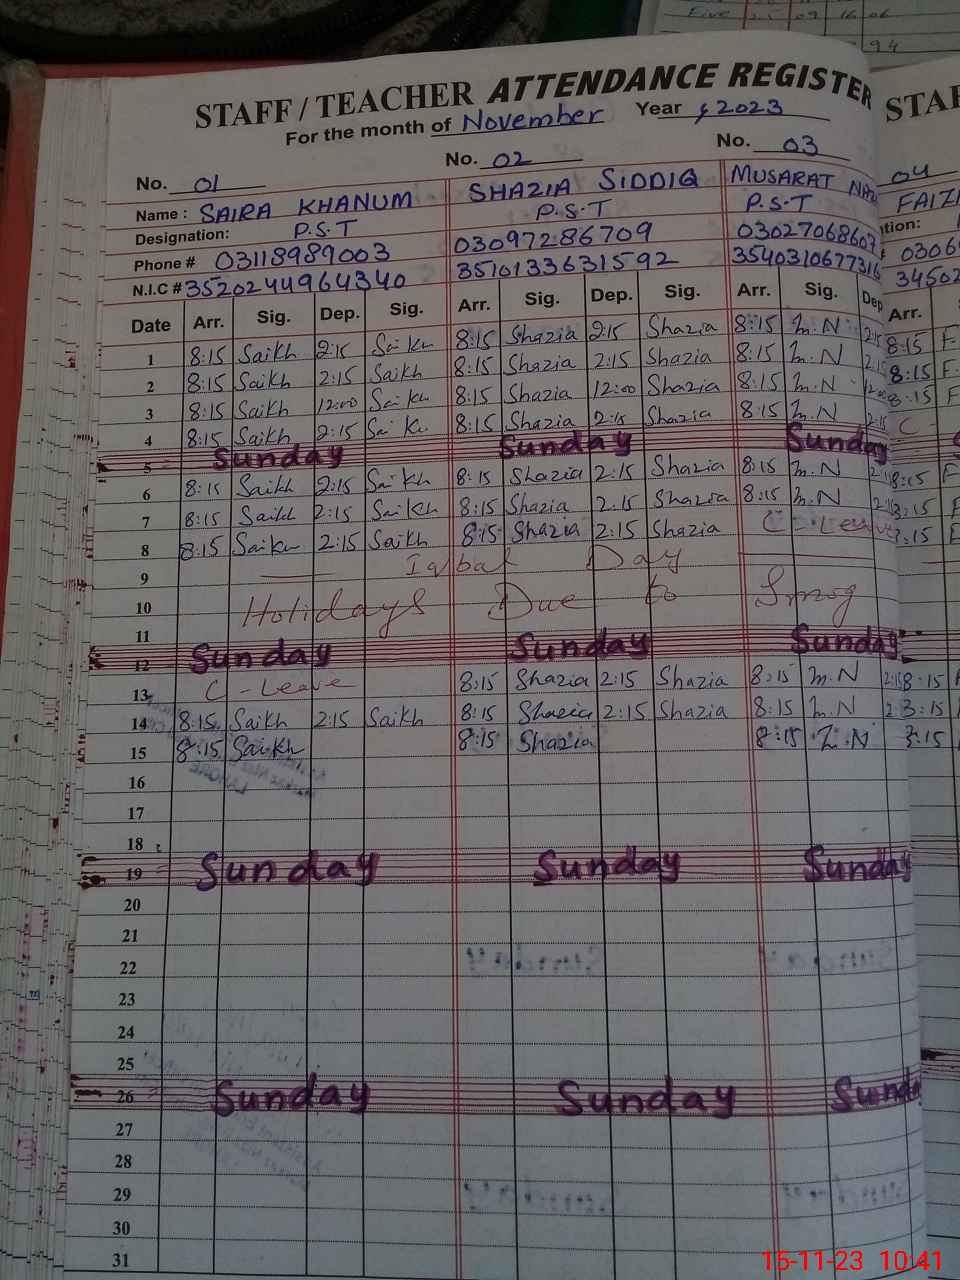 Five 21 09 16 06
94
STAFF / TEACHER ATTENDANCE REGISTER
For the month of November Year 2023
No. 01 No. 02 No. 03 04
Name : SAIRA KHANUM SHAZIA SIDDIQ MUSARAT
Designation: P.S.T P.S.T P.S.T
Phone # 03118989003 03097286709 03027068607
N.I.C # 3520244964340 3510133631592 3540310677316
Date Arr. Sig. Dep. Sig. Arr. Sig. Dep. Sig. Arr. Sig. Dep Arr.
1 8:15 Saikh 2:15 Saikh 8:15 Shazia 2:15 Shazia 8:15 M.N 2:15 8:15 F.
2 8:15 Saikh 2:15 Saikh 8:15 Shazia 2:15 Shazia 8:15 M.N 2:15 8:15 F.
3 8:15 Saikh 12:00 Saikh 8:15 Shazia 12:00 Shazia 8:15 M.N 8:15 F
4 8:15 Saikh 2:15 Saikh 8:15 Shazia 2:15 Shazia 8:15 M.N 2:15 C -
5 Sunday Sunday Sunday
6 8:15 Saikh 2:15 Saikh 8:15 Shazia 2:15 Shazia 8:15 M.N 8:15 F
7 8:15 Saikh 2:15 Saikh 8:15 Shazia 2:15 Shazia 8:15 M.N
8 8:15 Saikh 2:15 Saikh 8:15 Shazia 2:15 Shazia C - Leave
9 Iqbal Day
10 Holidays Due to Smog
11
12 Sunday Sunday Sunday
13 C - Leave 8:15 Shazia 2:15 Shazia 8:15 M.N 2:15 8:15
14 8:15 Saikh 2:15 Saikh 8:15 Shazia 2:15 Shazia 8:15 M.N
15 8:15 Saikh 8:15 Shazia 8:15 M.N
16
17
18
19 Sunday Sunday Sunday
20
21
22
23
24
25
26 Sunday Sunday Sunday
27
28
29
30
31
15-11-23 10:41